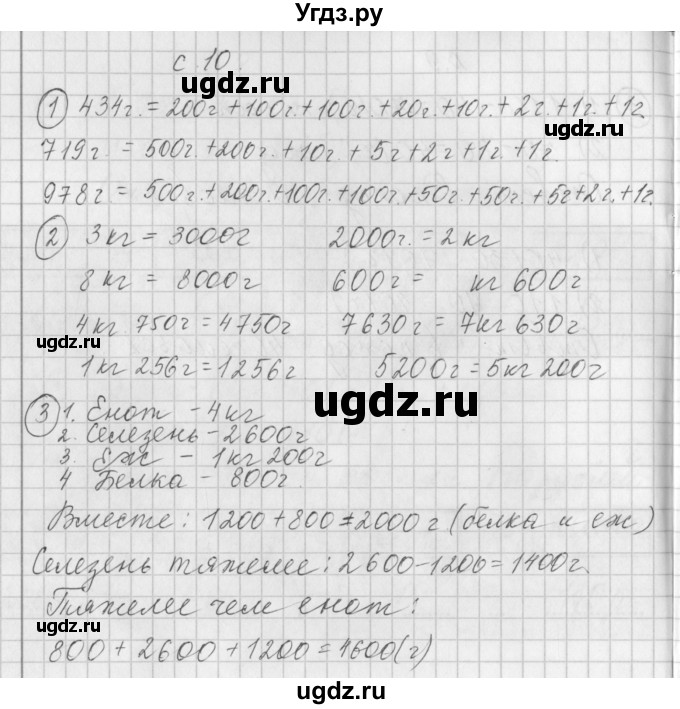 Угдз.ру
с. 10.
угдз.ru
1 434г. = 200г.+100г.+100г.+20г.+10г.+2г.+1г.+1г.
угдз.ru
719г. = 500г.+200г.+10г.+5г+2г+1г.+1г.
978г = 500г.+200г.+100г.+100г.+50г.+50г.+5г+2г.+1г.
2 3кг = 3000г 2000г. = 2кг
8кг = 8000г 600г = кг 600г
4кг 750г = 4750г 7630г = 7кг 630г
угдз.ru
1кг 256г = 1256г 5200г = 5кг 200г
угдз.ru
3 1. Енот - 4кг
2. Селезень - 2600г
3. Еж - 1кг 200г
4 Белка - 800г.
угдз.ru
Вместе: 1200+800=2000г (белка и еж)
Селезень тяжелее: 2600-1200=1400г.
Тяжелее чем енот:
угдз.ru
800+2600+1200=4600(г)
угдз.ru
угдз.ru